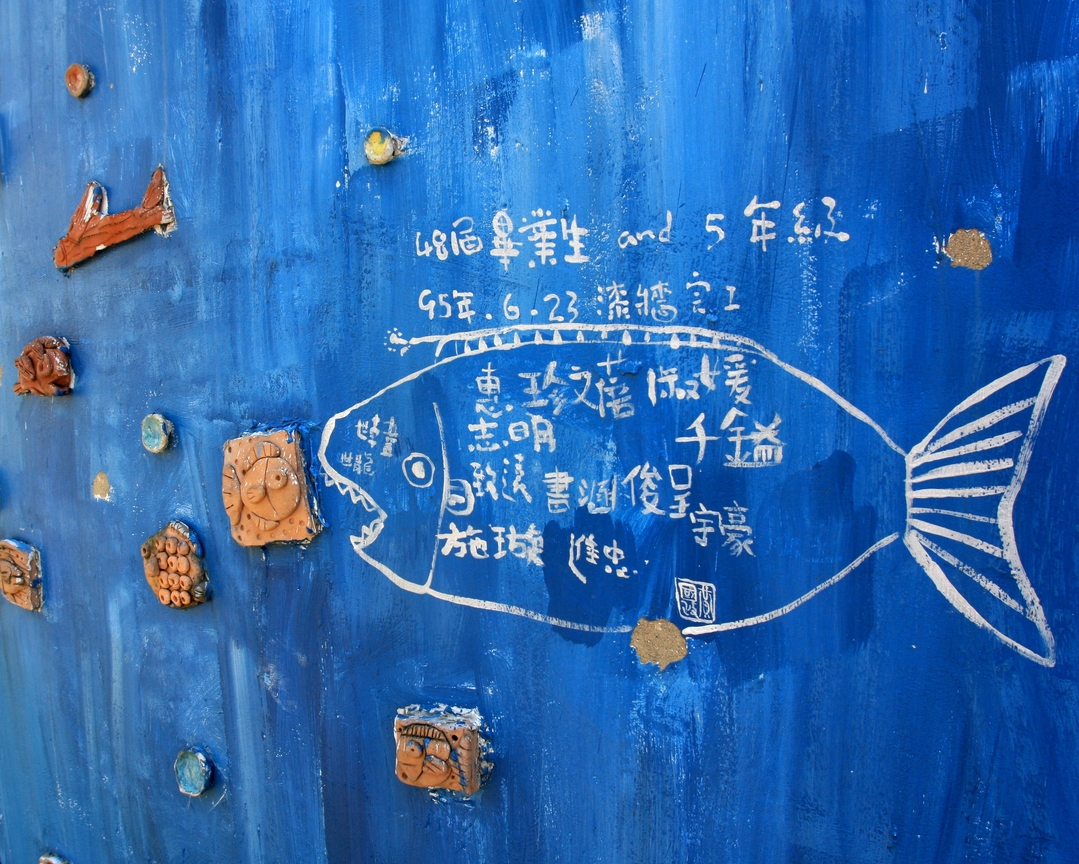 48屆畢業生 and 5年級
95年.6.23 漆牆完工
惠珍 文蓓 淑媛
志明 千鎰
致遠 書涵 俊呈
宇豪
施 進忠